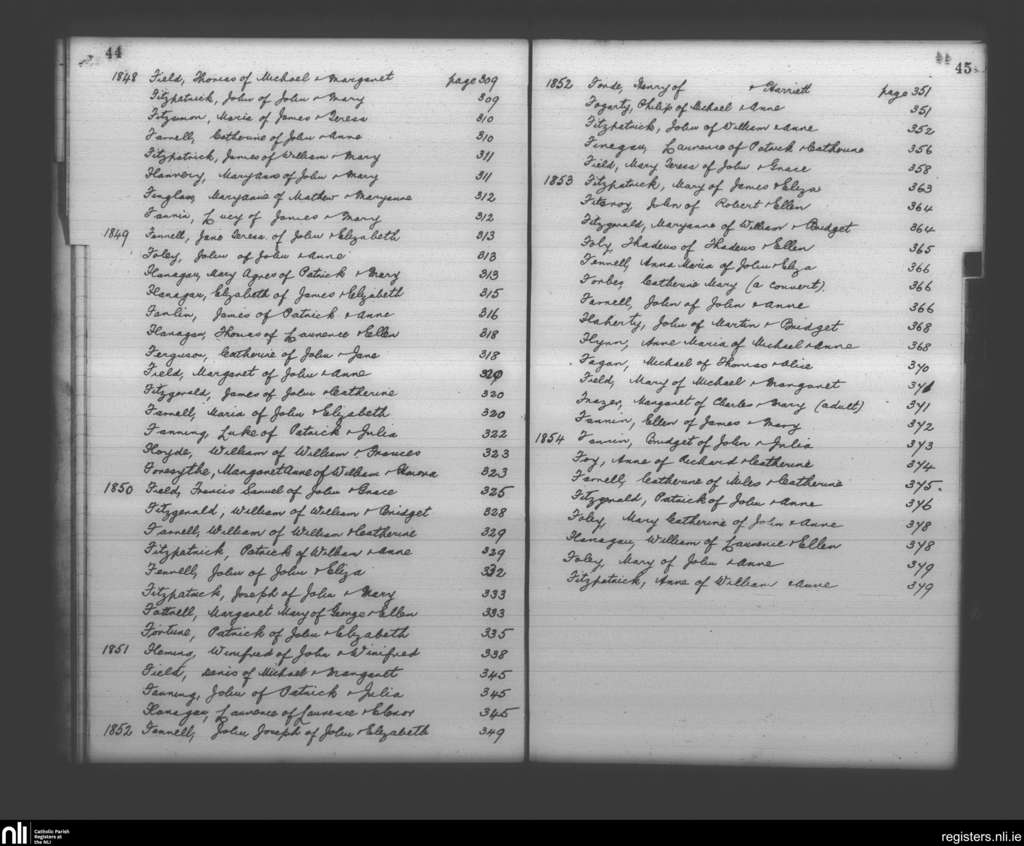 44
1848 Field, Thomas of Michael & Margaret page 309
Fitzpatrick, John of John & Mary 309
Fitzsimon, Maria of James & Teresa 310
Farrell, Catherine of John & Anne 310
Fitzpatrick, James of William & Mary 311
Flannery, Maryanne of John & Mary 311
Finglas, Maryanne of Mathew & Maryanne 312
Fannin, Lucy of James & Mary 312
1849 Fennell, Jane Teresa of John & Elizabeth 313
Foley, John of John & Anne 313
Flanagan, Mary Agnes of Patrick & Mary 313
Flanagan, Elizabeth of James & Elizabeth 315
Fanlin, James of Patrick & Anne 316
Flanagan, Thomas of Laurence & Ellen 318
Ferguson, Catherine of John & Jane 318
Field, Margaret of John & Anne 320
Fitzgerald, James of John & Catherine 320
Farrell, Maria of John & Elizabeth 320
Fanning, Luke of Patrick & Julia 322
Floyde, William of William & Frances 323
Foresythe, Margaret Anne of William & Honora 323
1850 Field, Francis Samuel of John & Grace 325
Fitzgerald, William of William & Bridget 328
Farrell, William of William & Catherine 329
Fitzpatrick, Patrick of William & Anne 329
Fennell, John of John & Eliza 332
Fitzpatrick, Joseph of John & Mary 333
Fottrell, Margaret Mary of George & Ellen 333
Fortune, Patrick of John & Elizabeth 335
1851 Fleming, Winifred of John & Winifred 338
Field, Denis of Michael & Margaret 345
Fanning, John of Patrick & Julia 345
Flanagan, Laurence of Laurence & Elenor 345
1852 Fennell, John Joseph of John & Elizabeth 349
45
1852 Forde, Henry of & Harriett page 351
Fogarty, Philip of Michael & Anne 351
Fitzpatrick, John of William & Anne 352
Finegan, Laurence of Patrick & Catherine 356
Field, Mary Teresa of John & Grace 358
1853 Fitzpatrick, Mary of James & Eliza 363
Fitzroy, John of Robert & Ellen 364
Fitzgerald, Maryanne of William & Bridget 364
Foly, Thadeus of Thadeus & Ellen 365
Fennell, Anna Maria of John & Eliza 366
Forbes, Catherine Mary (a convert) 366
Farnell, John of John & Anne 366
Flaherty, John of Martin & Bridget 368
Flynn, Anne Maria of Michael & Anne 368
Fagan, Michael of Thomas & Alice 370
Field, Mary of Michael & Margaret 371
Frazer, Margaret of Charles & Mary (adult) 371
Fannin, Ellen of James & Mary 372
1854 Fannin, Bridget of John & Julia 373
Foy, Anne of Richard & Catherine 374
Farrell, Catherine of Miles & Catherine 375
Fitzgerald, Patrick of John & Anne 376
Foley, Mary Catherine of John & Anne 378
Flanagan, William of Laurence & Ellen 378
Foley, Mary of John & Anne 379
Fitzpatrick, Anne of William & Anne 379
nli Catholic Parish
Registers at
the NLI
registers.nli.ie